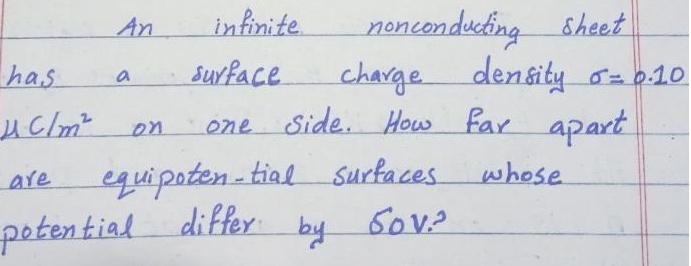 An infinite nonconducting sheet
has a surface charge density σ = 0.10
μC/m² on one side. How far apart
are equipoten-tial surfaces whose
potential differ by 50V.?